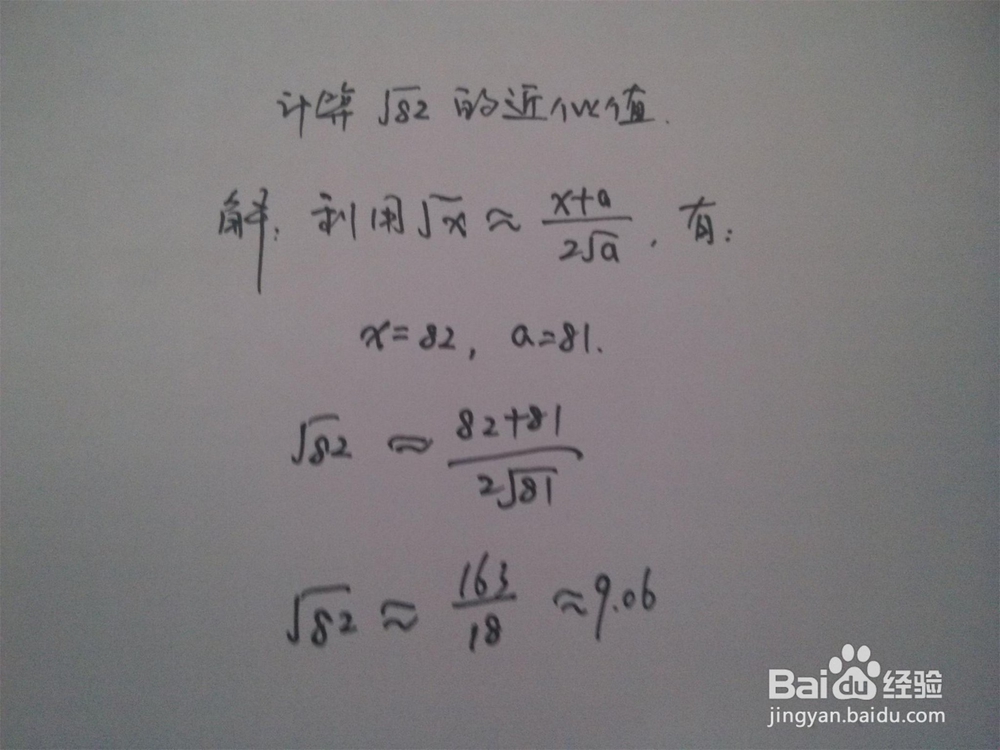 计算√82 的近似值.
解: 利用√x ≈ (x+a)/(2√a), 有:
x=82, a=81.
√82 ≈ (82+81)/(2√81)
√82 ≈ 163/18 ≈9.06
Baidu 经验
jingyan.baidu.com